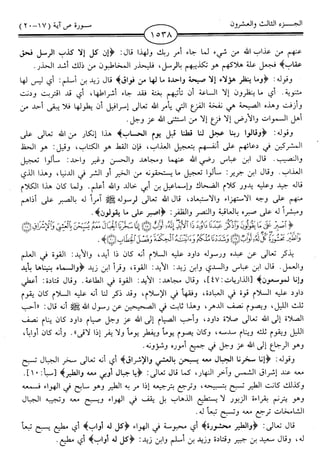 الجـــزء الثالث والعشرون
١٥٣٨
سورة ص آية (١٧-٢٠)
عنهم من عذاب الله من شيء لما جاء أمر ربك ولهذا قال: ﴿إن كل إلا كذب الرسل فحق
عقاب﴾ فجعل علة هلاكهم هو تكذيبهم بالرسل، فليحذر المخاطبون من ذلك أشد الحذر.
وقوله: ﴿وما ينظر هؤلاء إلا صيحة واحدة ما لها من فواق﴾ قال زيد بن أسلم: أي ليس لها
مثنوية. أي ما ينتظرون إلا الساعة أن تأتيهم بغتة فقد جاء أشراطها، أي قد اقتربت ودنت
وأزفت وهذه الصيحة هي نفخة الفزع التي يأمر الله تعالى إسرافيل أن يطولها فلا يبقى أحد من
أهل السموات والأرض إلا فزع إلا من استثنى الله عز وجل.
وقوله: ﴿وقالوا ربنا عجل لنا قطنا قبل يوم الحساب﴾ هذا إنكار من الله تعالى على
المشركين في دعائهم على أنفسهم بتعجيل العذاب، فإن القط هو الكتاب، وقيل: هو الحظ
والنصيب. قال ابن عباس رضي الله عنهما ومجاهد والحسن وغير واحد: سألوا تعجيل
العذاب. وقال ابن جرير: سألوا تعجيل ما يستحقونه من الخير أو الشر في الدنيا، وهذا الذي
قاله جيد وعليه يدور كلام الضحاك وإسماعيل بن أبي خالد والله أعلم. ولما كان هذا الكلام
منهم على وجه الاستهزاء والاستبعاد، قال الله تعالى لرسوله ﷺ آمراً له بالصبر على أذاهم
ومبشراً له على صبره بالعاقبة والنصر والظفر: ﴿اصبر على ما يقولون﴾.
يذكر تعالى عن عبده ورسوله داود عليه السلام أنه كان ذا أيد، والأيد: القوة في العلم
والعمل. قال ابن عباس والسدي وابن زيد: الأيد: القوة، وقرأ ابن زيد ﴿والسماء بنيناها بأيد
وإنا لموسعون﴾ [الذاريات: ٤٧]، وقال مجاهد: الأيد: القوة في الطاعة. وقال قتادة: أعطي
داود عليه السلام قوة في العبادة، وفقهاً في الإسلام، وقد ذكر لنا أنه عليه السلام كان يقوم
ثلث الليل، ويصوم نصف الدهر، وهذا ثابت في الصحيحين عن رسول الله ﷺ أنه قال: «أحب
الصلاة إلى الله تعالى صلاة داود، وأحب الصيام إلى الله عز وجل صيام داود كان ينام نصف
الليل ويقوم ثلثه وينام سدسه، وكان يصوم يوماً ويفطر يوماً ولا يفر إذا لاقى». وأنه كان أواباً،
وهو الرجاع إلى الله عز وجل في جميع أموره وشؤونه.
وقوله: ﴿إنا سخرنا الجبال معه يسبحن بالعشي والإشراق﴾ أي أنه تعالى سخر الجبال تسبح
معه عند إشراق الشمس وآخر النهار، كما قال تعالى: ﴿يا جبال أوبي معه والطير﴾ [سبأ: ١٠].
وكذلك كانت الطير تسبح بتسبيحه، وترجع بترجيعه إذا مر به الطير وهو سابح في الهواء فسمعه
وهو يترنم بقراءة الزبور لا يستطيع الذهاب بل يقف في الهواء ويسبح معه وتجيبه الجبال
الشامخات ترجع معه وتسبح تبعاً له.
قال تعالى: ﴿والطير محشورة﴾ أي محبوسة في الهواء ﴿كل له أواب﴾ أي مطيع يسبح تبعاً
له، وقال سعيد بن جبير وقتادة وزيد بن أسلم وابن زيد: ﴿كل له أواب﴾ أي مطيع.